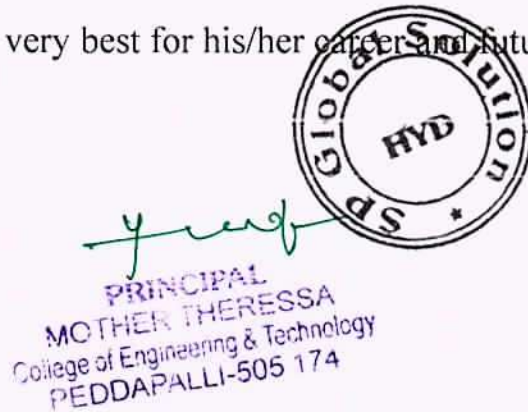 very best for his/her career and futu
SP Global Solution *
HYD
PRINCIPAL
MOTHER THERESSA
College of Engineering & Technology
PEDDAPALLI-505 174